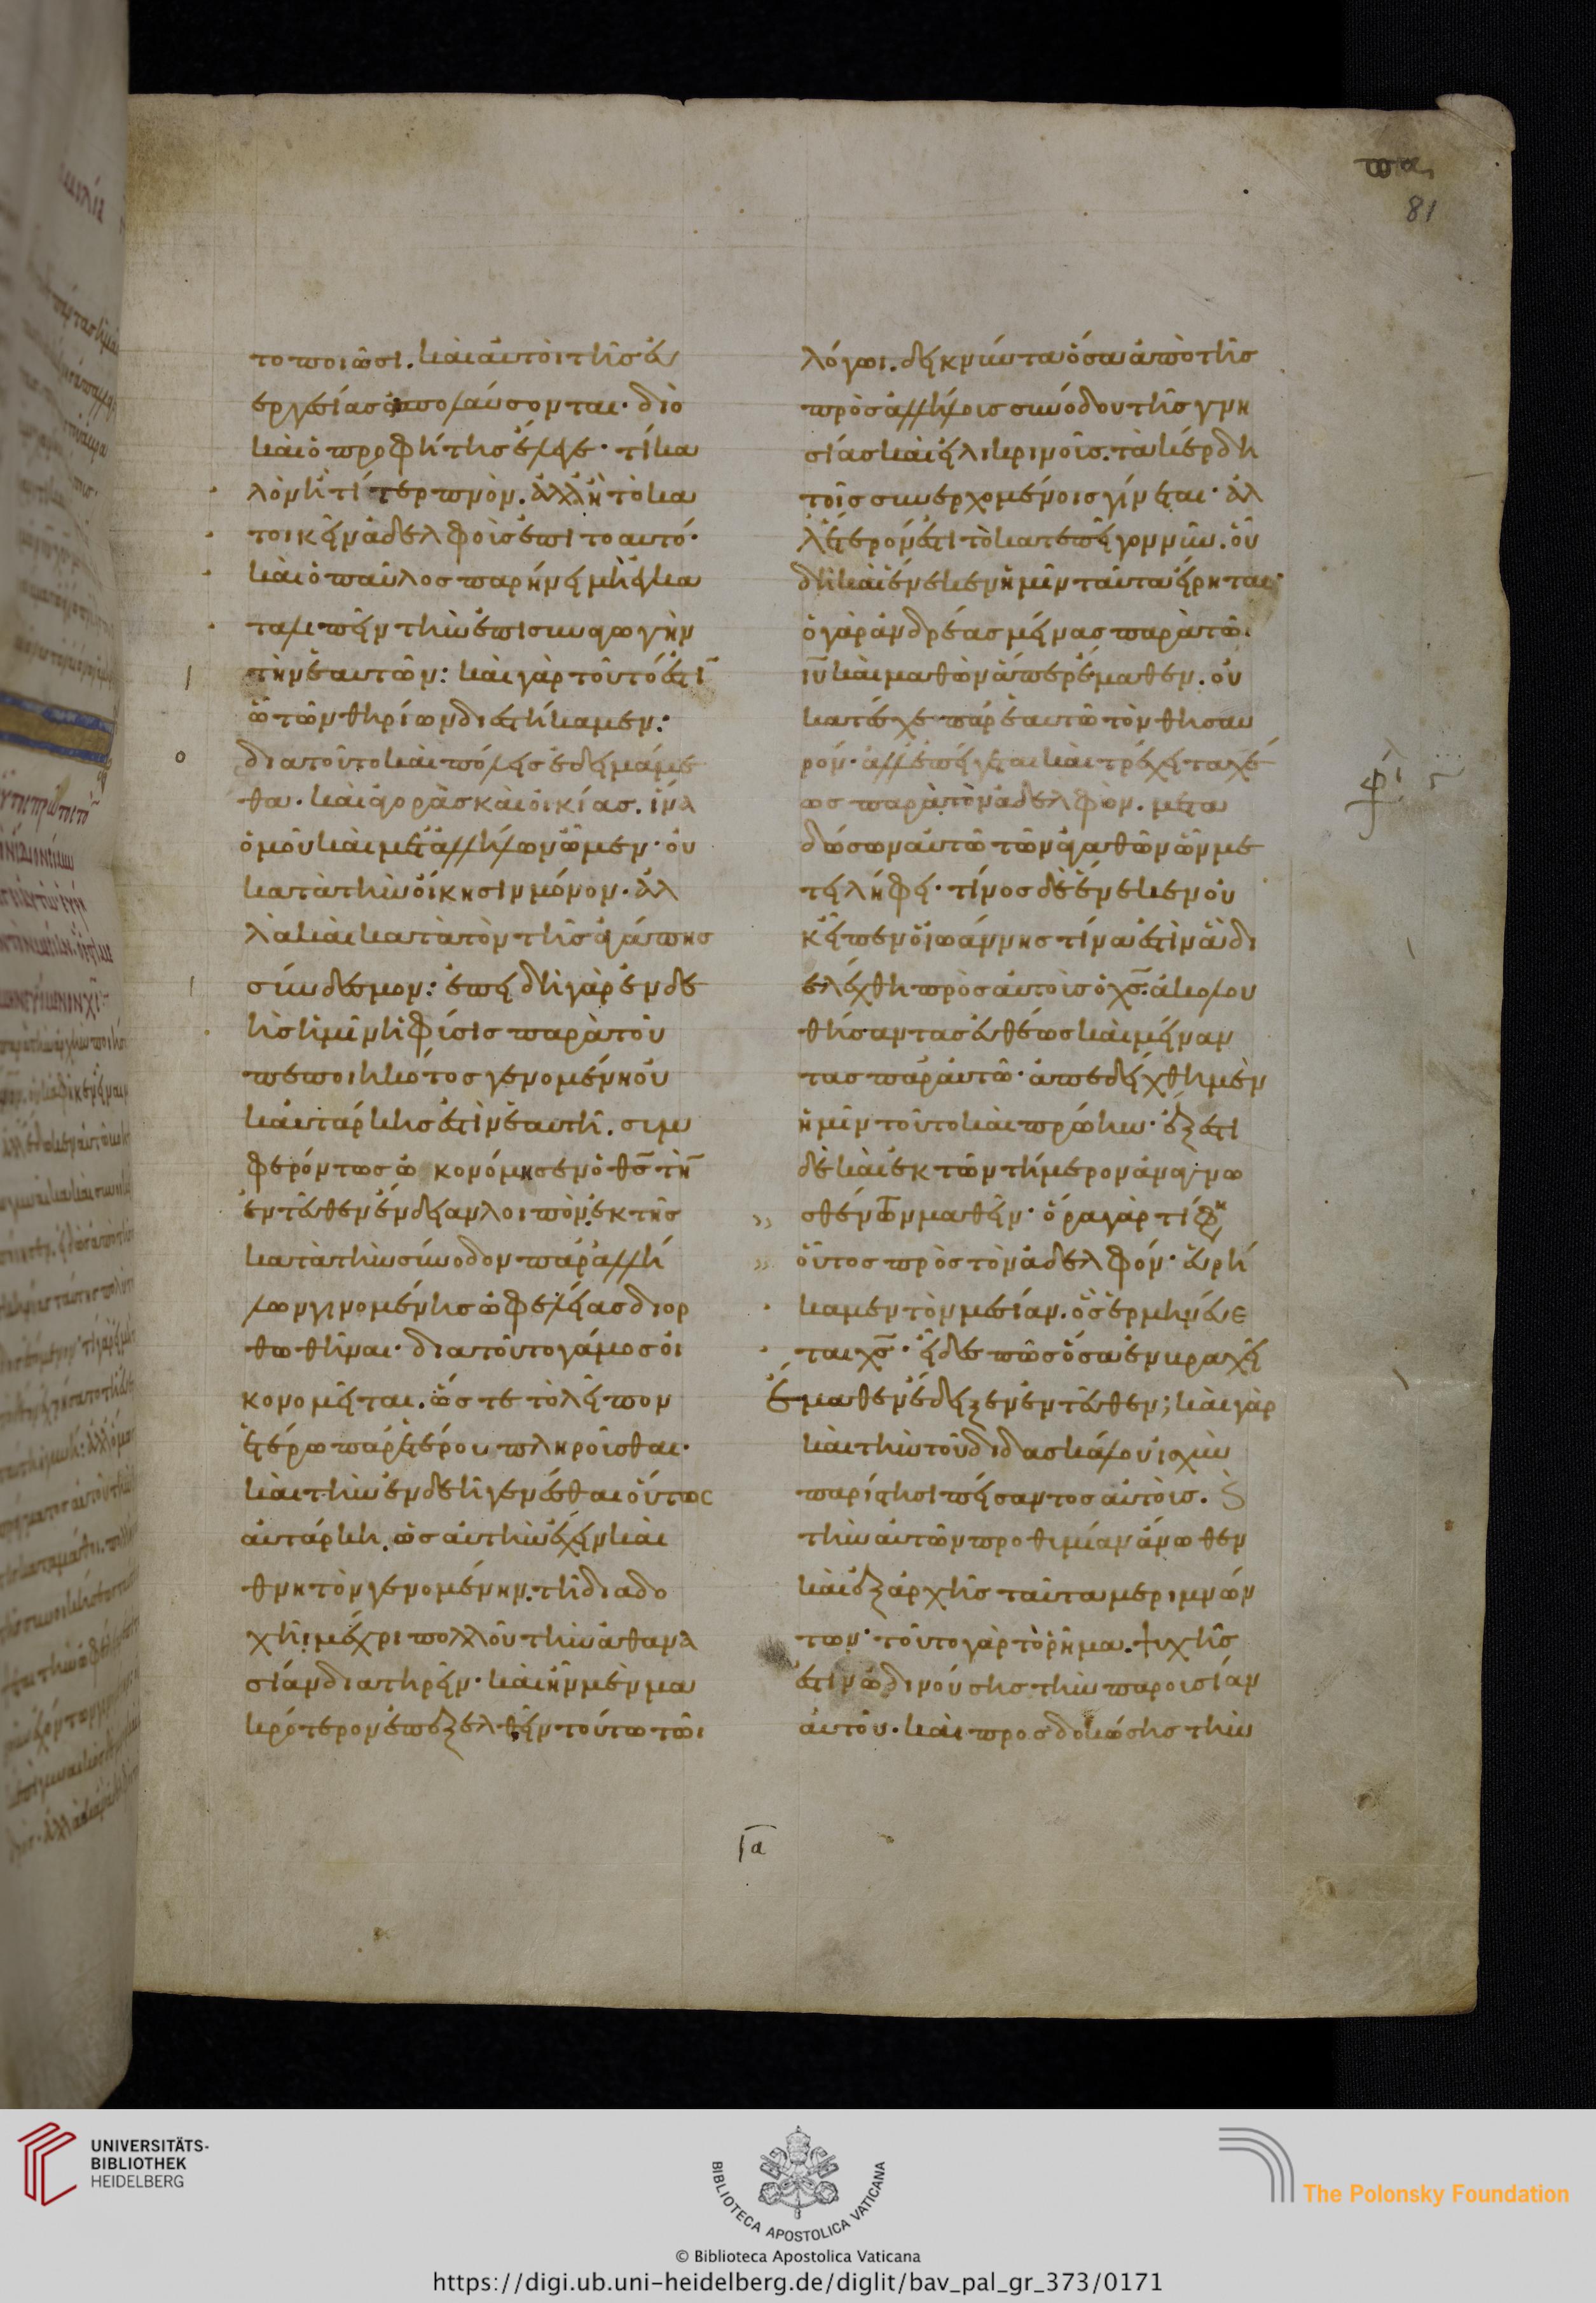 το ποιῶσι. καὶ αὐτοὶ τῆς εὐ
εργεσίας ἀπολαύσονται· διὸ
καὶ ὁ προφήτης ἔλεγε· τί κα
λὸν ἢ τί τερπνὸν. ἀλλ' ἢ τὸ κα
τοικεῖν ἀδελφοὺς ἐπιτοαυτό·
καὶ ὁ παῦλος παρήνει μὴ ἐγκα
ταλιπεῖν τὴν ἐπισυναγωγὴν
τὴν ἑαυτῶν: καὶ γὰρ τοῦτό ἐστῑ
ὧ τῶν θηρίων διεστήκαμεν:
διατοῦτο καὶ πόλεις ἐδειμάμε
θα. καὶ ἀγορὰς καὶ οἰκίας. ἵνα
ὁμοῦ καὶ μετ' ἀλλήλων ὦμεν· οὐ
κατὰ τὴν οἴκησιν μόνον. ἀλ
λὰ καὶ κατὰ τὸν τῆς ἀγάπης
σύνδεσμον: ἐπειδὴ γὰρ ἐνδε
ὴς ἡμῖν ἡ φύσις παρὰ τοῦ
πεποιηκότος γενομένη οὐ
κ αὐτάρκης ἐστὶν ἑαυτῆ. συμ
φερόντως ὠκονόμησεν ὁ θ̅ς̅ τὴ̅
ἐντεῦθεν ἔνδειαν λοιπὸν ἐκ τῆς
κατὰ τὴν σύνοδον παρ' ἀλλή
λων γινομένης ὠφελείας διορ
θωθῆναι· διατοῦτο γάμος οἰ
κονομεῖται. ὥστε τὸ λεῖπον
ἑτέρω παρ' ἑτέρου πληροῦσθαι·
καὶ τὴν ἐνδεῆ γενέσθαι οὕτως
αὐτάρκη. ὡς αὐτὴν ἔχειν καὶ
θνητὸν γενομένην. τῆ διαδο
χῆι μέχρι πολλοῦ τὴν ἀθανα
σίαν διατηρεῖν· καὶ ἦν μὲν μα
κρότερον ἐπεξελθεῖν τούτω τῶι
λόγωι. δεικνύντα ὅσα ἀπὸ τῆς
πρὸς ἀλλήλοις συνόδου τῆς γνη
σίας καὶ εἰλικρινοῦς. τὰ κέρδη
τοῖς συνερχομένοις γίνεται· ἀλ
λ' ἕτερόν ἐστι τὸ κατεπεῖγον νῦν. οὗ
δὴ καὶ ἕνεκεν ἡμῖν ταῦτα εἴρηται·
ὁ γὰρ ἀνδρέας μείνας παρὰ τῶι
ι̅υ̅ καὶ μαθὼν ἅπερ ἔμαθεν. οὐ
κατέχε παρ' ἑαυτῶ τὸν θησαυ
ρόν· ἀλλ' ἐπείγεται καὶ τρέχει ταχέ
ως παρὰ τὸν ἀδελφὸν. μετα
δώσων αὐτῶ τῶν ἀγαθῶν ὧν με
τείληφε· τίνος δὲ ἕνεκεν οὐ
κ εἶπεν ὁ ἰωάννης τίνα ἐστὶν ἃ δι
ελέχθη πρὸς αὐτοὺς ὁ χ̅ς̅. ἀκολου
θήσαντας εὐθέως καὶ μείναν
τας παρ' αὐτῶ· ἀπεδείχθη μὲν
ἡμῖν τοῦτο καὶ πρώην· ἔξεστι
δὲ καὶ ἐκ τῶν τήμερον ἀναγνω
σθέντων μαθεῖν· ὅρα γὰρ τί φη
οὗτος πρὸς τὸν ἀδελφόν· εὑρή
καμεν τὸν μεσίαν. ὅς ἑρμηνεύε
ται χ̅ς̅· εἶδες πῶς ὅσα ἐν βραχεῖ
ἔμαθεν ἔδειξεν ἐντεῦθεν; καὶ γὰρ
καὶ τὴν τοῦ διδασκάλου ἰσχὺν
παρίστησι πείσαντος αὐτοὺς.
τὴν αὐτῶν προθυμίαν ἄνωθεν
καὶ ἐξαρχῆς ταῦτα μεριμνών
των· τοῦτο γὰρ τὸ ῥῆμα. ψυχῆς
ἐστὶν ὠδινούσης τὴν παρουσίαν
αὐτοῦ. καὶ προσδοκώσης τὴν
ια
81
UNIVERSITÄTS-
BIBLIOTHEK
HEIDELBERG
BIBLIOTECA APOSTOLICA VATICANA
The Polonsky Foundation
© Biblioteca Apostolica Vaticana
https://digi.ub.uni-heidelberg.de/diglit/bav_pal_gr_373/0171